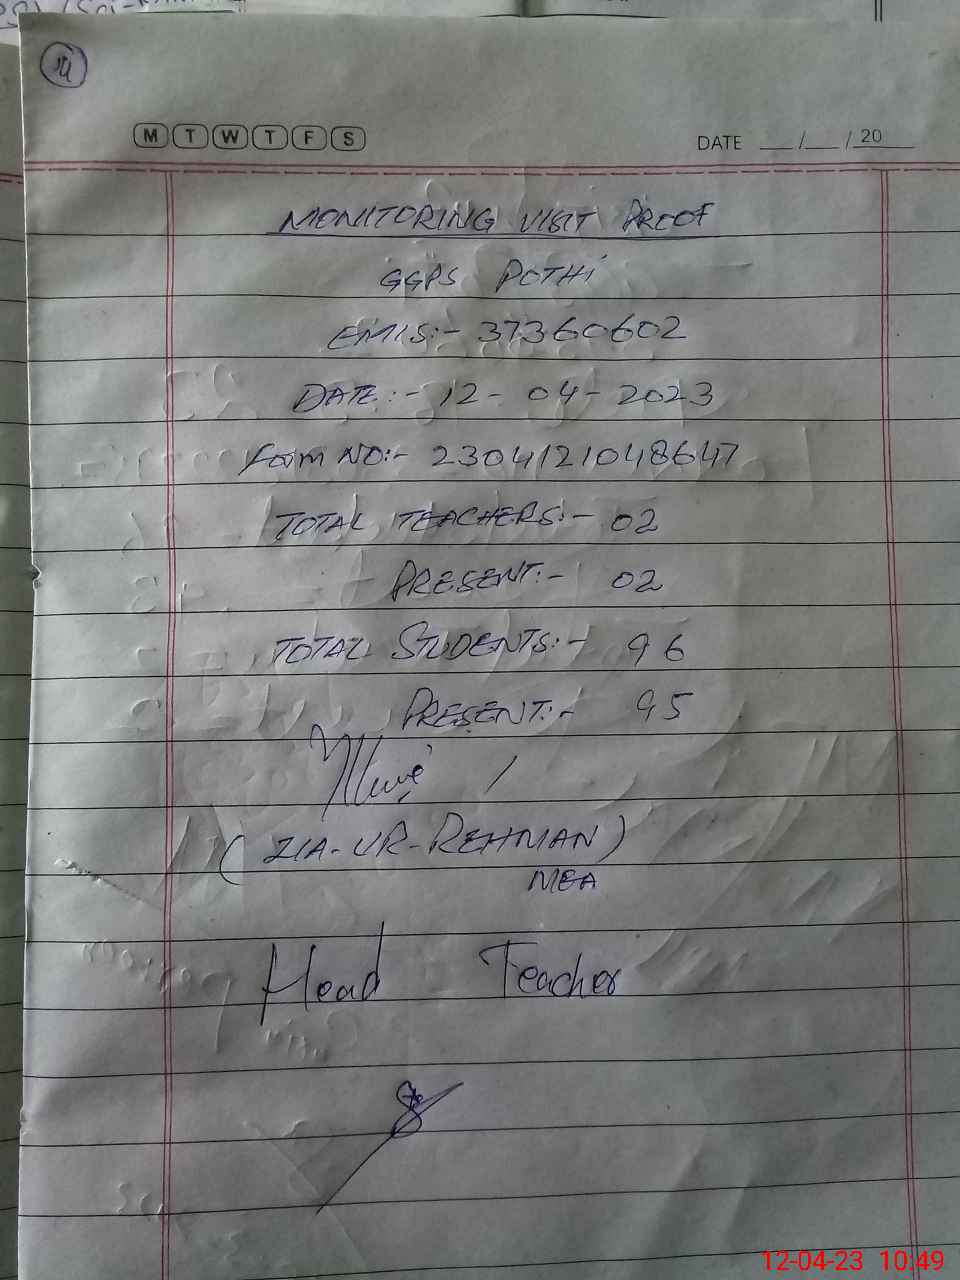 M T W T F S
DATE __/__/20__
MONITORING VISIT PROOF
GGPS POTHI
EMIS:- 37360602
DATE:- 12-04-2023
Form NO:- 2304121048647
TOTAL TEACHERS:- 02
PRESENT:- 02
TOTAL STUDENTS:- 96
PRESENT:- 95
(ZIA-UR-REHMAN)
MEA
Head Teacher
12-04-23 10:49